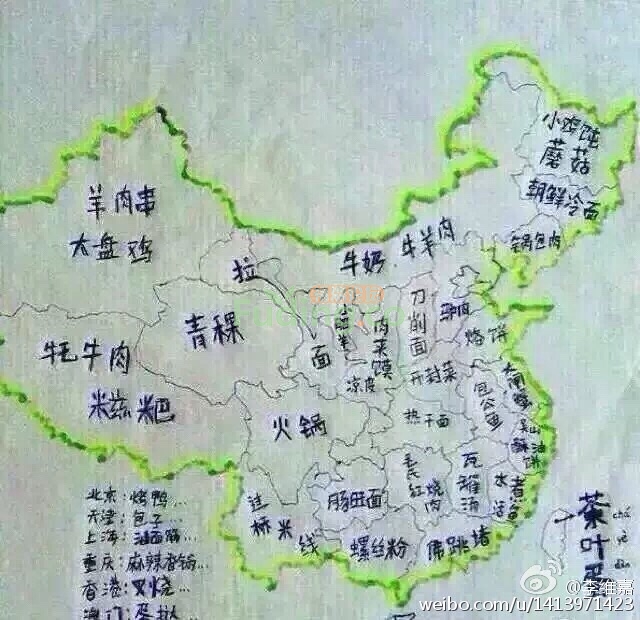 小鸡炖
蘑菇
朝鲜冷面
锅包肉
羊肉串
大盘鸡
拉
面
牛奶、牛羊肉
青稞
牦牛肉
糌粑
肉夹馍
凉皮
刀削面
驴肉
烙饼
开封菜
火锅
热干面
包公鱼
吴山油酥饼
过桥米线
肠旺面
毛氏红烧肉
瓦罐汤
水煮活鱼
螺丝粉
佛跳墙
茶叶蛋
chá yè dàn
北京:烤鸭...
天津:包子...
上海:油面筋...
重庆:麻辣香锅...
香港:叉烧...
澳门:蛋挞...
@李维嘉
weibo.com/u/1413971423